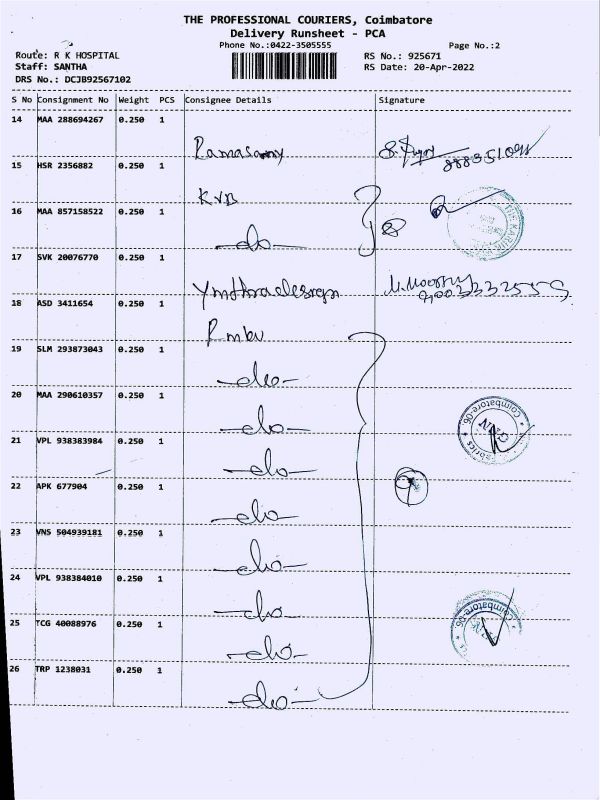 THE PROFESSIONAL COURIERS, Coimbatore
Delivery Runsheet - PCA
Phone No.:0422-3505555
Page No.:2
Route: R K HOSPITAL
RS No.: 925671
Staff: SANTHA
RS Date: 20-Apr-2022
DRS No.: DCJB92567102
S No Consignment No Weight PCS Consignee Details Signature
14 MAA 288694267 0.250 1 Ramasamy
15 HSR 2356882 0.250 1 KVB
16 MAA 857158522 0.250 1 -do-
17 SVK 20076770 0.250 1
18 ASD 3411654 0.250 1
19 SLM 293873043 0.250 1 -do-
20 MAA 290610357 0.250 1 -do-
21 VPL 938383984 0.250 1 -do-
22 APK 677904 0.250 1 -do-
23 VNS 504939181 0.250 1 -do-
24 VPL 938384010 0.250 1 -do-
25 TCG 40088976 0.250 1 -do-
26 TRP 1238031 0.250 1 -do-
Coimbatore-06.
Coimbatore-06.